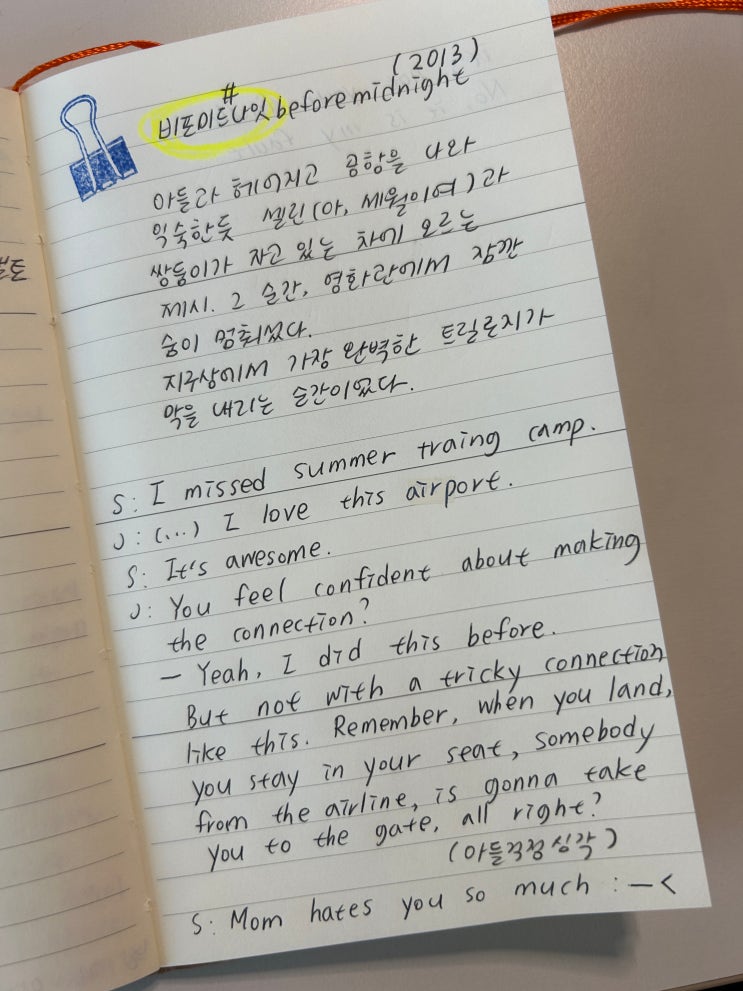 (2013)
#
비포미드나잇 before midnight
아들과 헤어지고 공항을 나와
익숙한듯 셀린(아, 세월이여)과
쌍둥이가 자고 있는 차에 오르는
제시. 그 순간, 영화관에서 잠깐
숨이 멈춰졌다.
지구상에서 가장 완벽한 트릴로지가
막을 내리는 순간이었다.
S: I missed summer traing camp.
J: (...) I love this airport.
S: It's awesome.
J: You feel confident about making
the connection?
- Yeah, I did this before.
But not with a tricky connection
like this. Remember, when you land,
you stay in your seat, somebody
from the airline, is gonna take
you to the gate, all right?
(아들걱정 심각)
S: Mom hates you so much :-<